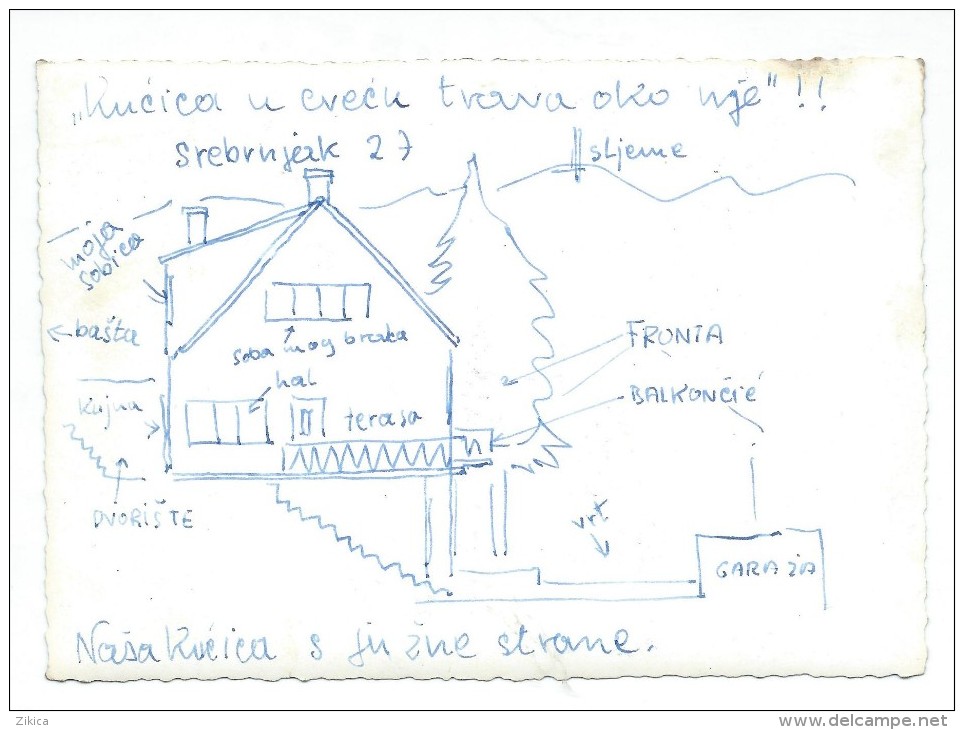 „Kućica u creću trava oko nje"!!
srebrnjak 27
sljeme
moja sobica
← bašta
soba mog brata
hal
kujna
terasa
FRONTA
BALKONČIĆ
DVORIŠTE
vrt
GARAŽA
Naša kućica s južne strane.
Zikica
www.delcampe.net